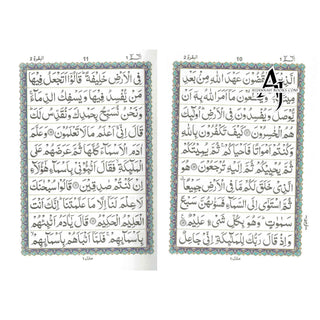 البقرة ٢
10
الٓمّٓ ١
قُضُوْنَ عَهْدَ اللّٰهِ مِنْۢ بَعْدِ
وَيَقْطَعُوْنَ مَاۤ اَمَرَ اللّٰهُ بِهٖۤ اَنْ
يُّوْصَلَ وَيُفْسِدُوْنَ فِى الْاَرْضِ ؕ اُولٰٓئِكَ
هُمُ الْخٰسِرُوْنَ ۝ كَيْفَ تَكْفُرُوْنَ بِاللّٰهِ
وَكُنْتُمْ اَمْوَاتًا فَاَحْيَاكُمْ ۚ ثُمَّ يُمِيْتُكُمْ
ثُمَّ يُحْيِيْكُمْ ثُمَّ اِلَيْهِ تُرْجَعُوْنَ ۝ هُوَ
الَّذِىْ خَلَقَ لَكُمْ مَّا فِى الْاَرْضِ جَمِيْعًا
ثُمَّ اسْتَوٰۤى اِلَى السَّمَآءِ فَسَوّٰىهُنَّ سَبْعَ
سَمٰوٰتٍ ؕ وَهُوَ بِكُلِّ شَىْءٍ عَلِيْمٌ ۝
وَاِذْ قَالَ رَبُّكَ لِلْمَلٰٓئِكَةِ اِنِّىْ جَاعِلٌ
البقرة ٢
11
الٓمّٓ ١
فِى الْاَرْضِ خَلِيْفَةً ؕ قَالُوْۤا اَتَجْعَلُ فِيْهَا
مَنْ يُّفْسِدُ فِيْهَا وَيَسْفِكُ الدِّمَآءَ ۚ
وَنَحْنُ نُسَبِّحُ بِحَمْدِكَ وَنُقَدِّسُ لَكَ ؕ
قَالَ اِنِّىْۤ اَعْلَمُ مَا لَا تَعْلَمُوْنَ ۝ وَعَلَّمَ
اٰدَمَ الْاَسْمَآءَ كُلَّهَا ثُمَّ عَرَضَهُمْ عَلَى
الْمَلٰٓئِكَةِ ۙ فَقَالَ اَنْۢبِـُٔوْنِىْ بِاَسْمَآءِ هٰٓؤُلَآءِ
اِنْ كُنْتُمْ صٰدِقِيْنَ ۝ قَالُوْا سُبْحٰنَكَ
لَا عِلْمَ لَنَاۤ اِلَّا مَا عَلَّمْتَنَا ؕ اِنَّكَ اَنْتَ
الْعَلِيْمُ الْحَكِيْمُ ۝ قَالَ يٰۤاٰدَمُ اَنْۢبِئْهُمْ
بِاَسْمَآئِهِمْ ۚ فَلَمَّاۤ اَنْۢبَاَهُمْ بِاَسْمَآئِهِمْ ۙ